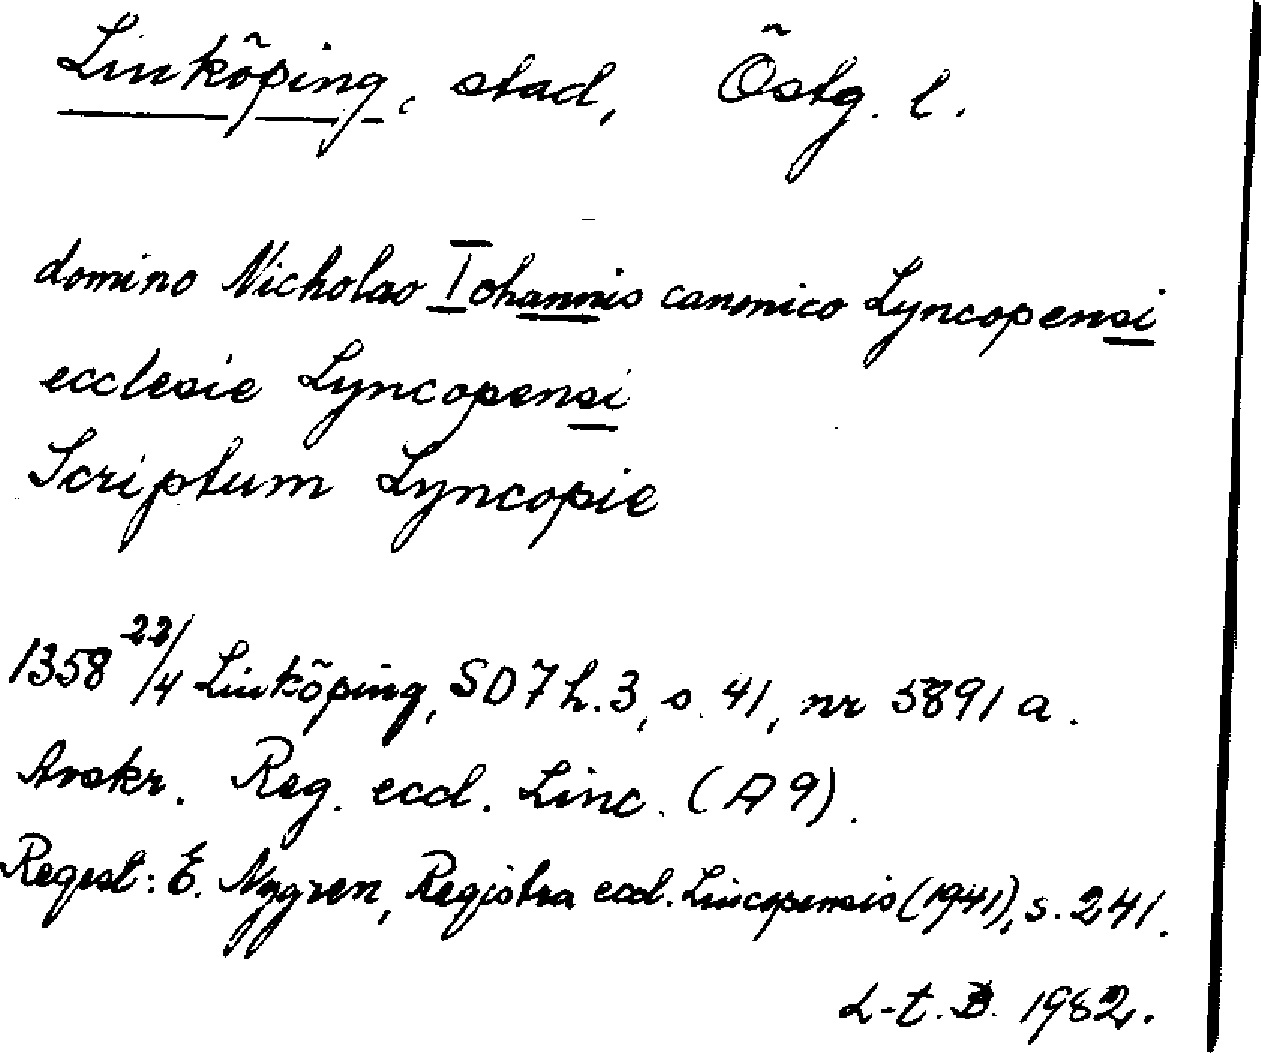 Linköping, stad, Östg. l.
domino Nicholao Iohannis canonico Lyncopensi
ecclesie Lyncopensi
Scriptum Lyncopie
1358 22/4 Linköping, SD 7 h. 3, s. 41, nr 5891 a.
Avskr. Reg. eccl. Linc. (A 9).
Regest: E. Nygren, Registra eccl. Lincopensis (1941), s. 241.
L-t. B. 1982.